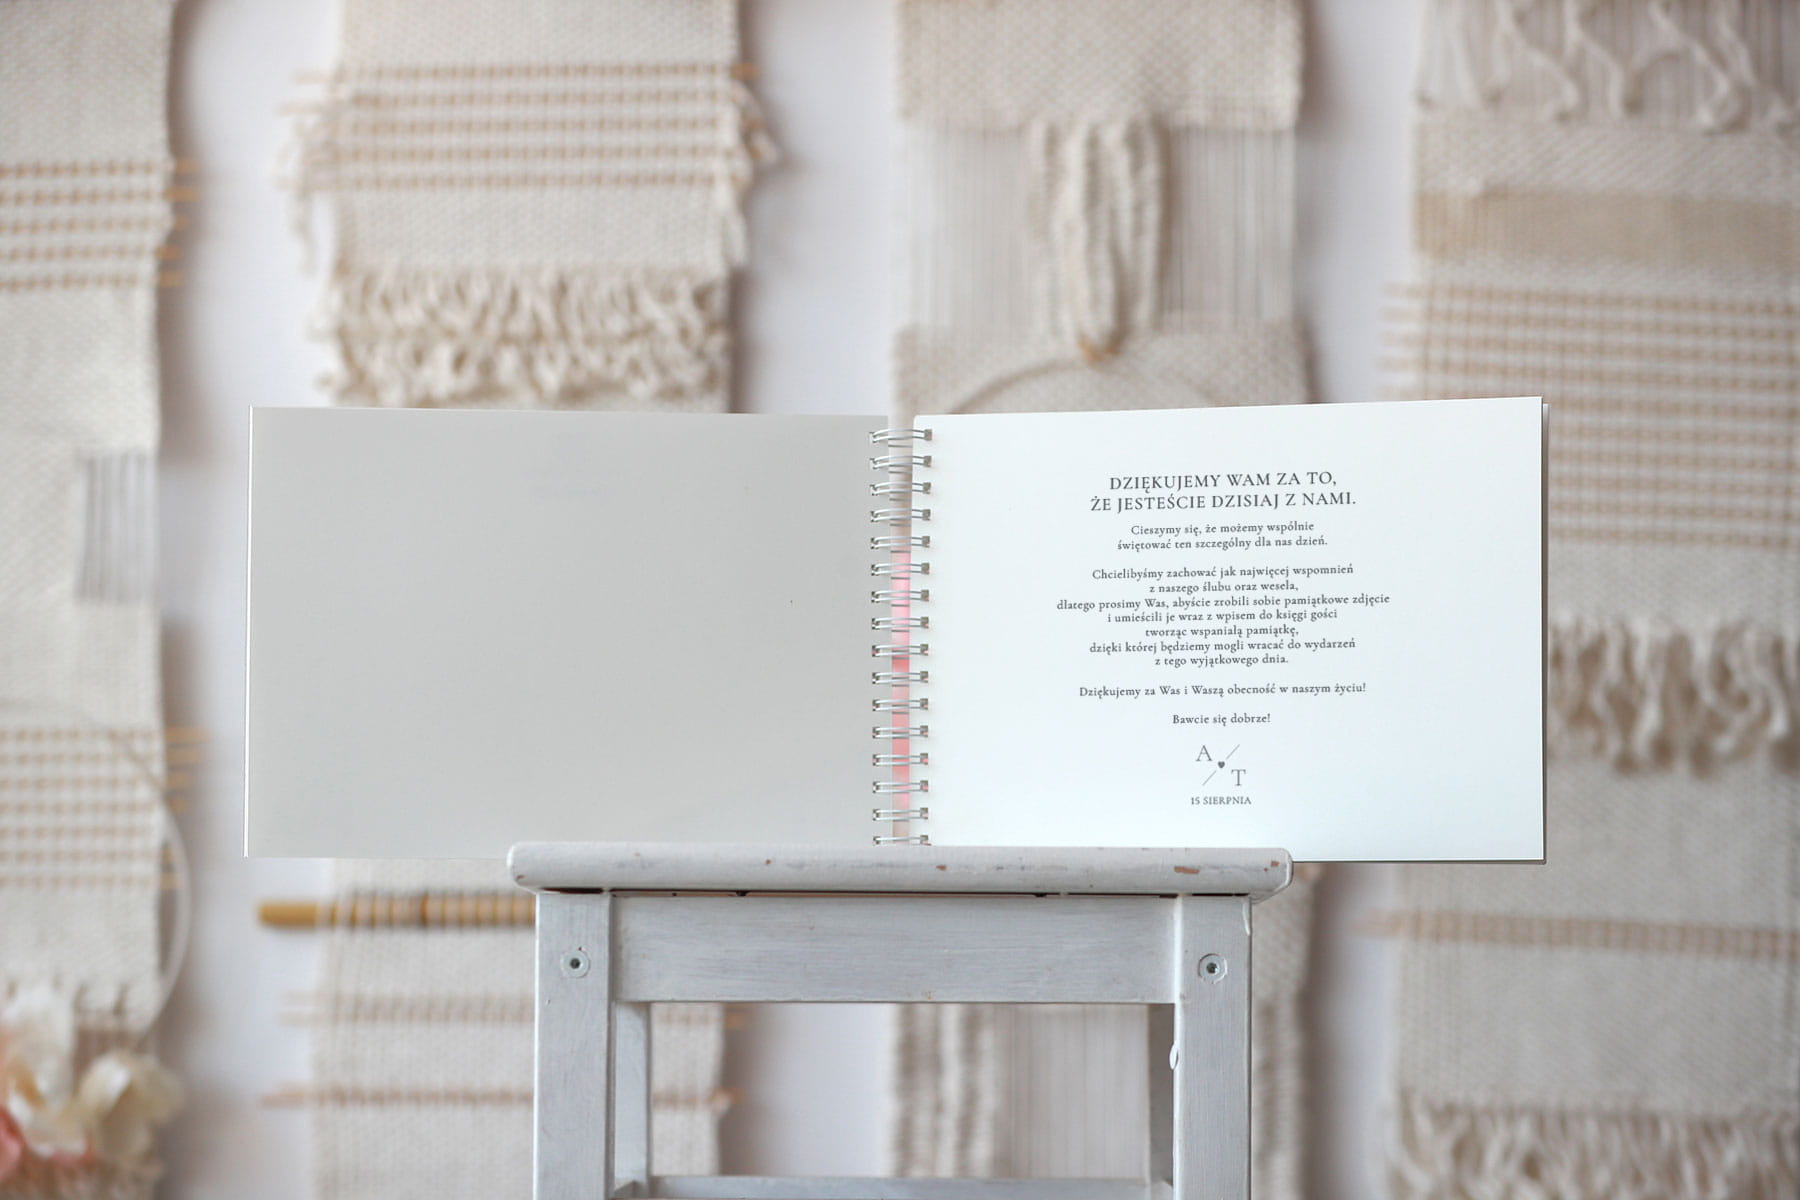 DZIĘKUJEMY WAM ZA TO,
ŻE JESTEŚCIE DZISIAJ Z NAMI.
Cieszymy się, że możemy wspólnie
świętować ten szczególny dla nas dzień.
Chcielibyśmy zachować jak najwięcej wspomnień
z naszego ślubu oraz wesela,
dlatego prosimy Was, abyście zrobili sobie pamiątkowe zdjęcie
i umieścili je wraz z wpisem do księgi gości
tworząc wspaniałą pamiątkę,
dzięki której będziemy mogli wracać do wydarzeń
z tego wyjątkowego dnia.
Dziękujemy za Was i Waszą obecność w naszym życiu!
Bawcie się dobrze!
A
T
15 SIERPNIA